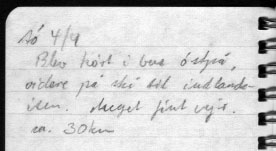 4/9
Blev kørt i
videre på ski til indlands-
isen. Meget fint vejr.
ca. 30 km